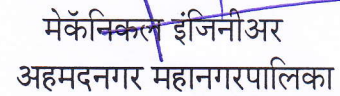 मेकॅनिकल इंजिनीअर
अहमदनगर महानगरपालिका